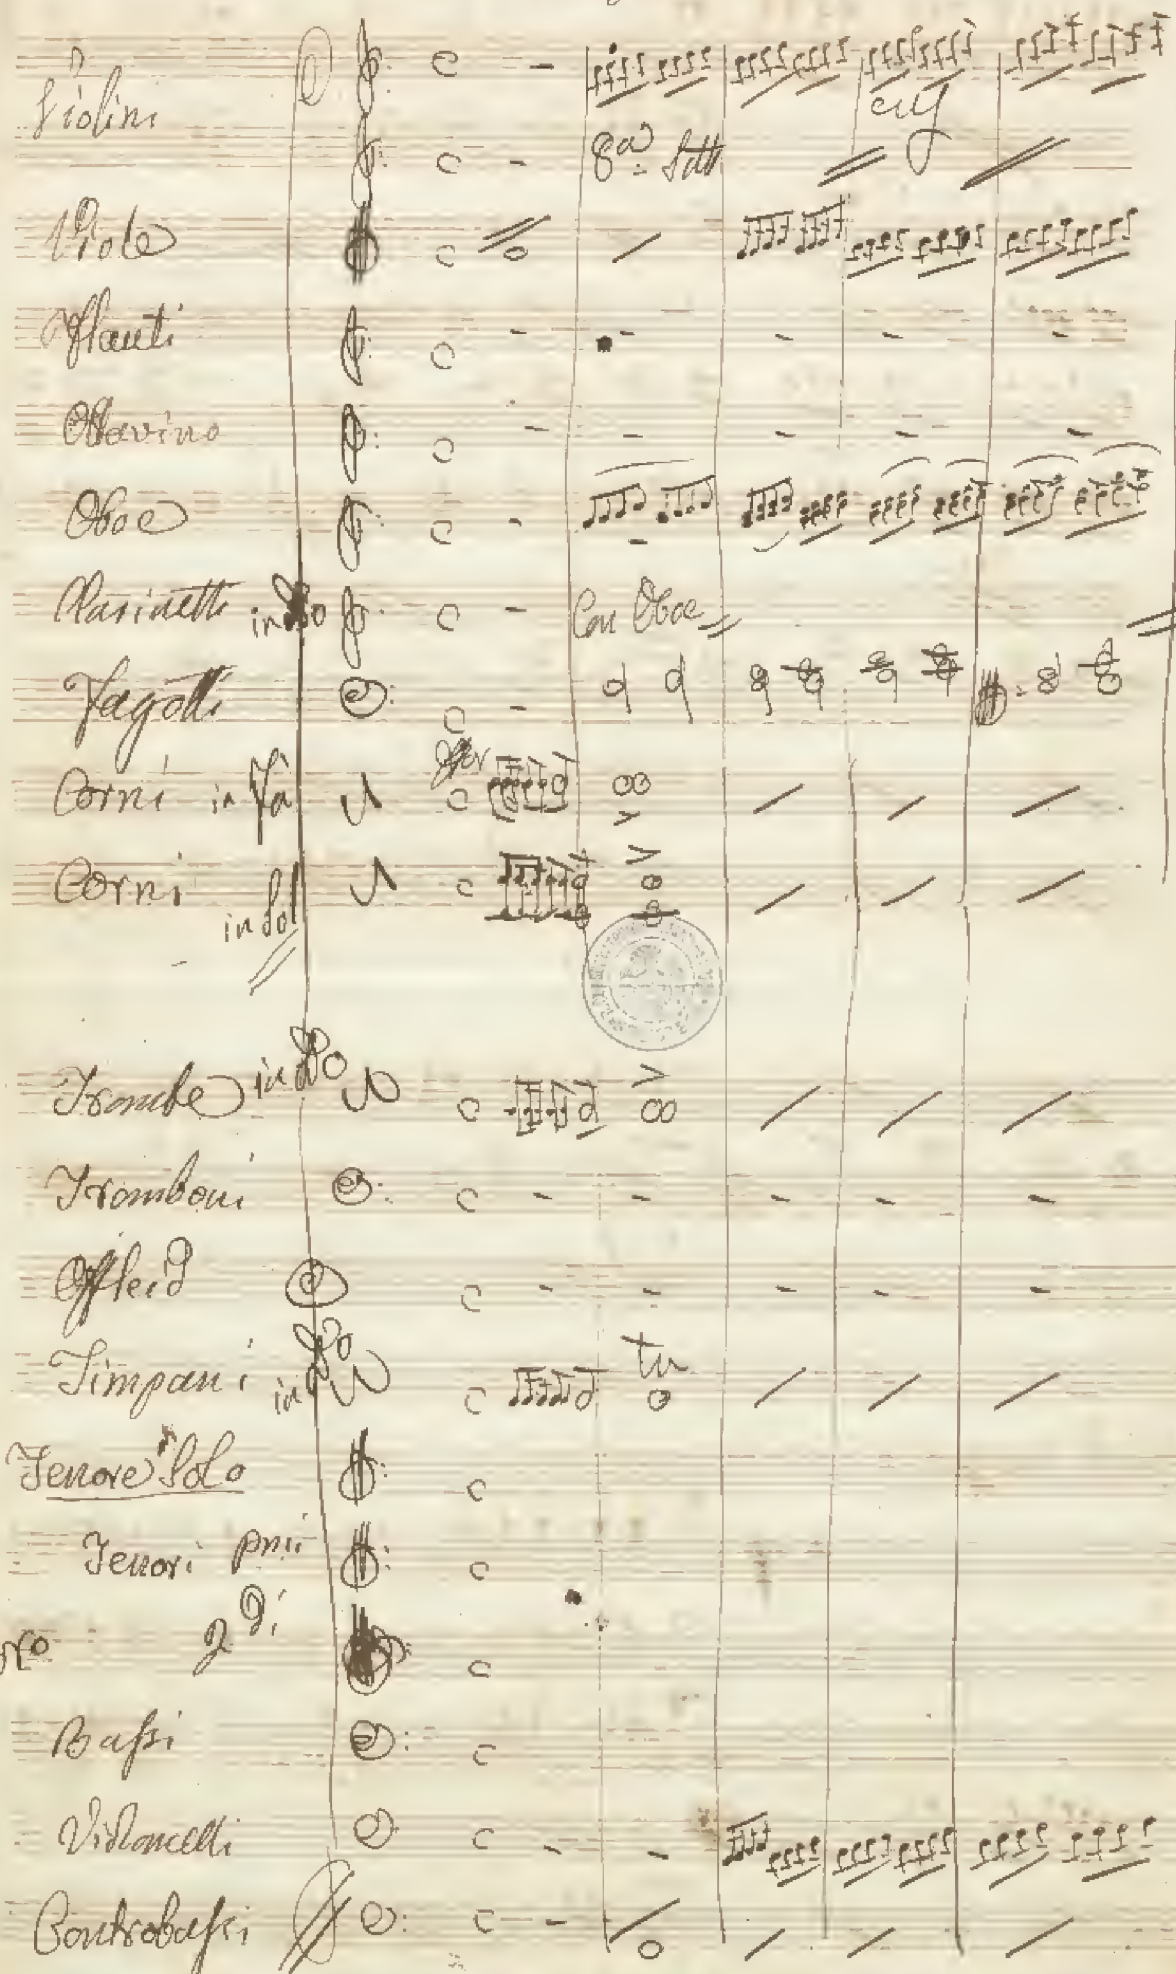 Violini
8ª Sotto
Viole
Flauti
Ottavino
Oboe
Clarinetti in Do
Con Oboe
Fagotti
Corni in Fa
Corni
in Sol
Trombe in Do
Tromboni
Officleid
Timpani in Do
tr
Tenore Solo
Tenori pmi
2di
Bassi
Violoncelli
Controbassi